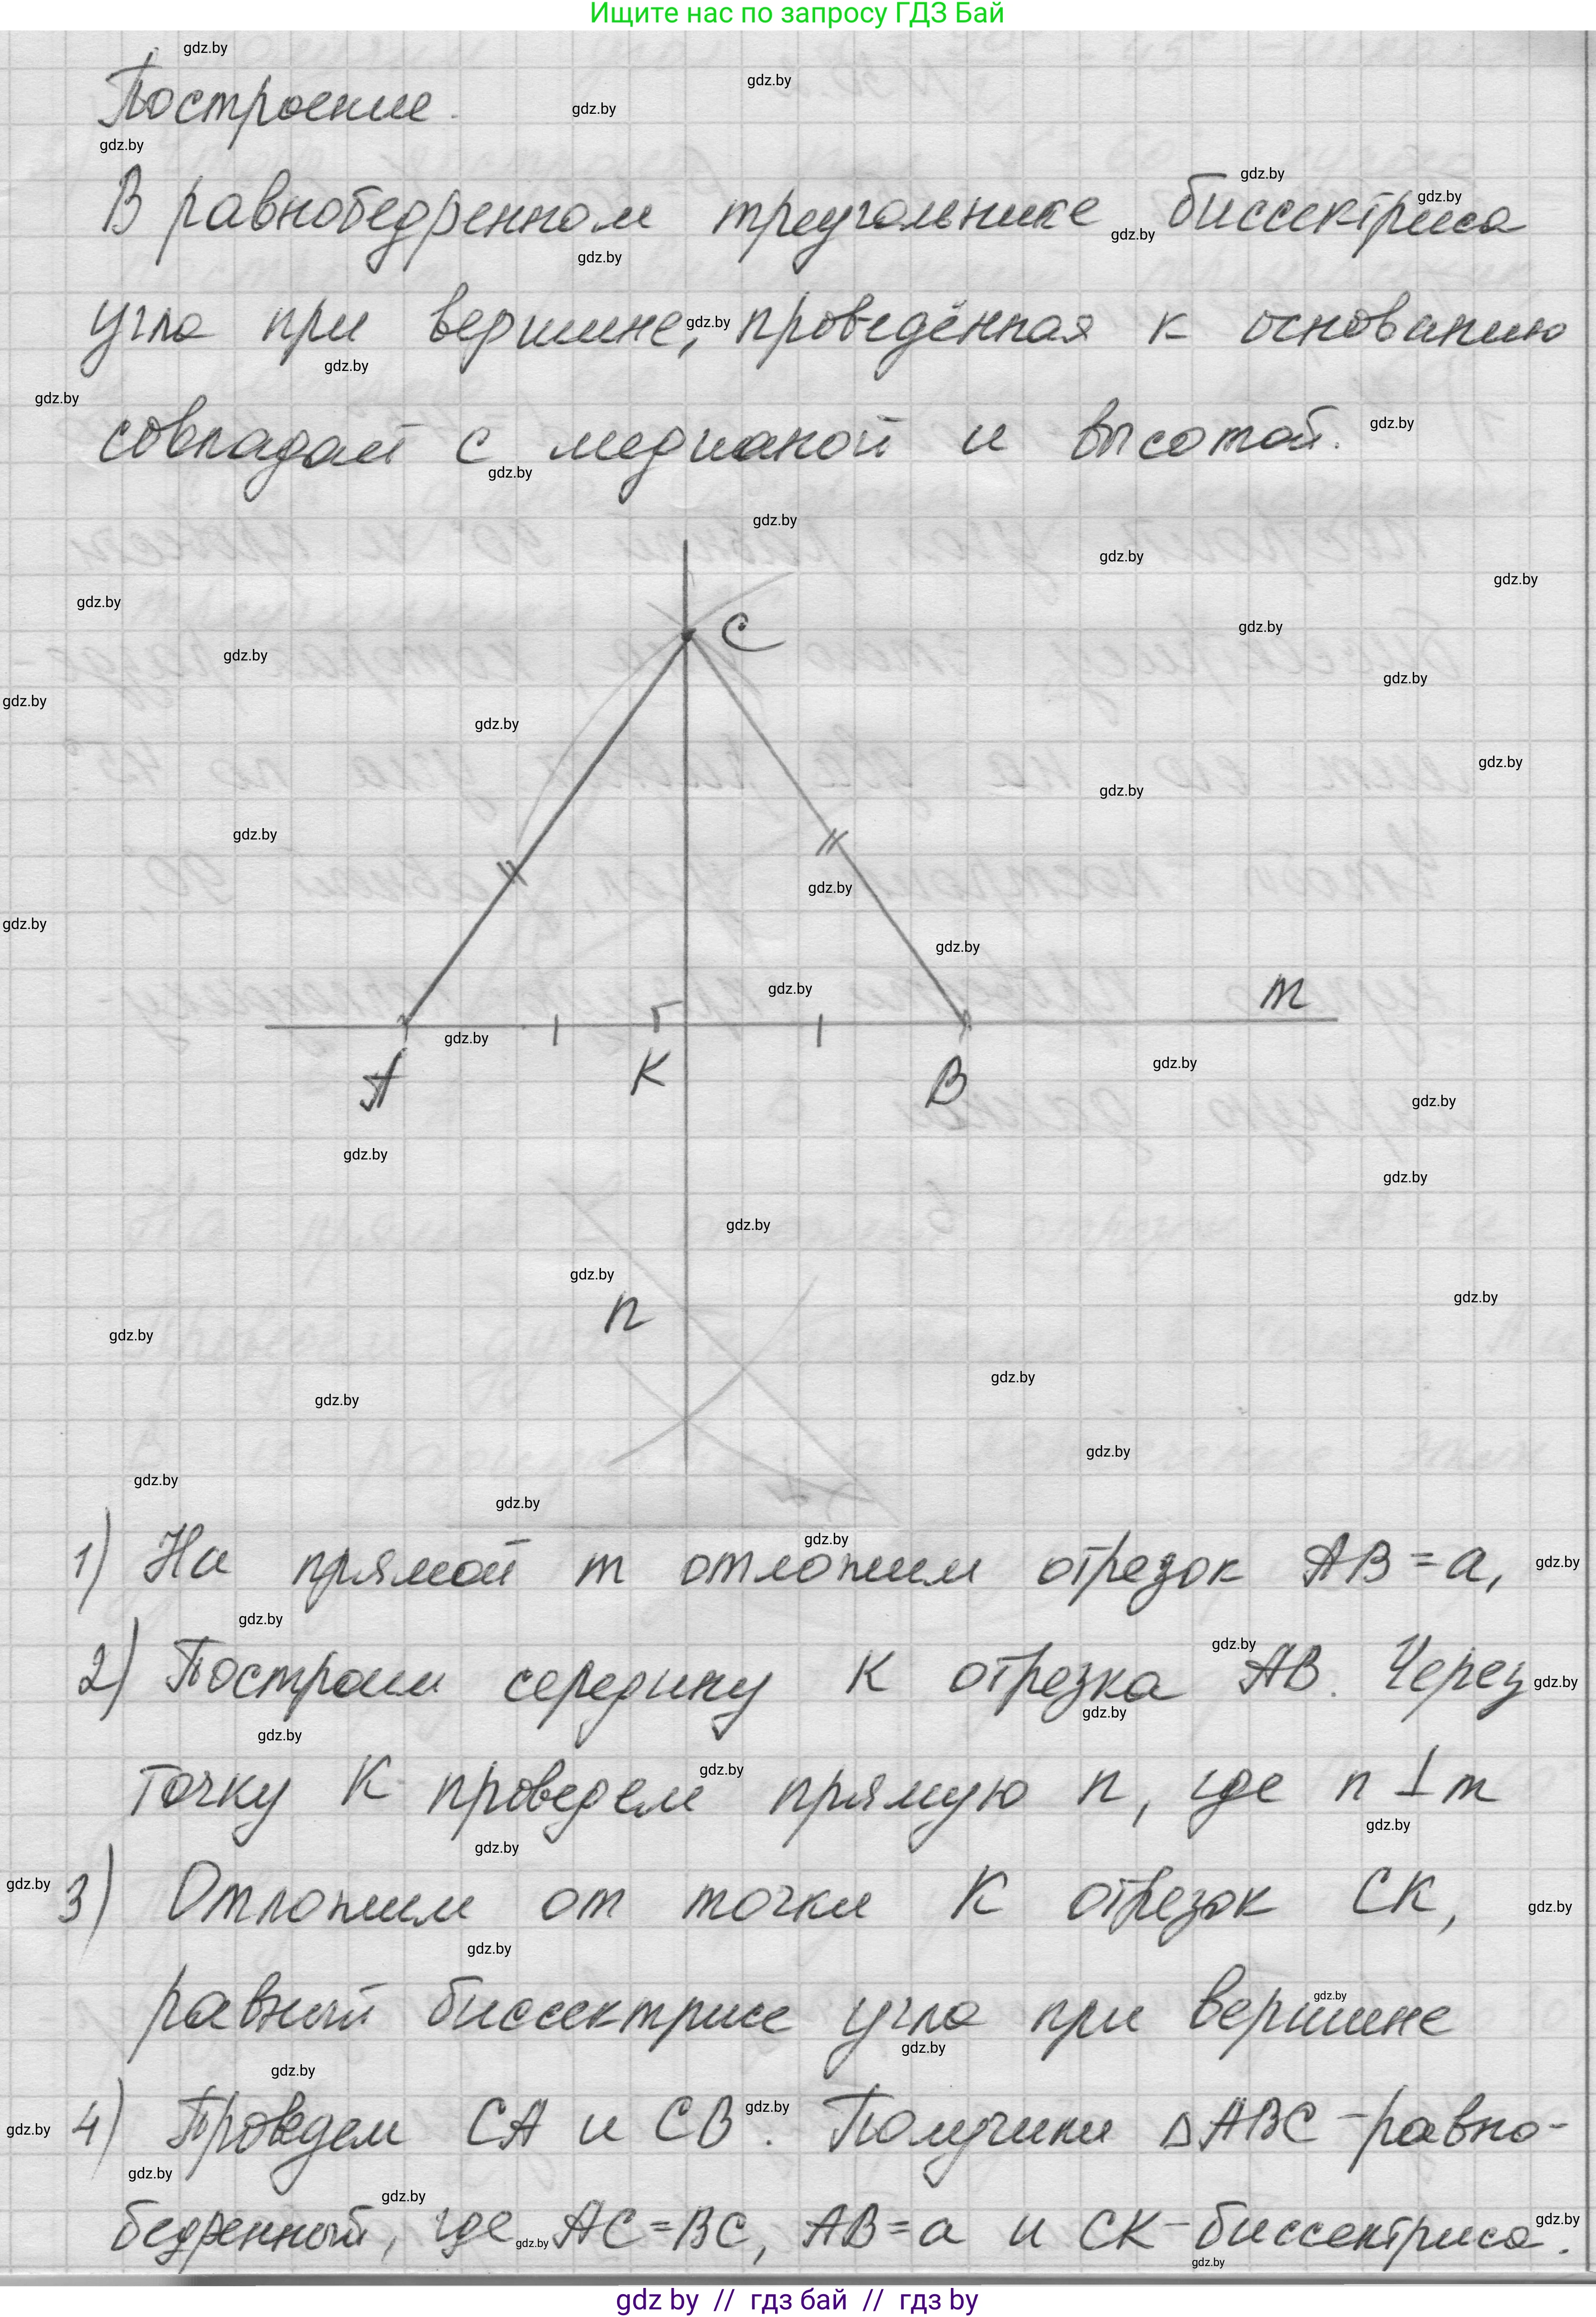 Ищите нас по запросу ГДЗ Бай
Построение.
В равнобедренном треугольнике биссектриса
угла при вершине, проведённая к основанию
совпадает с медианой и высотой.
C
m
A K B
n
1) На прямой m отложим отрезок AB = a,
2) Построим середину K отрезка AB. Через
точку K проведем прямую n, где n ⊥ m
3) Отложим от точки K отрезок CK,
равный биссектрисе угла при вершине
4) Проведем CA и CB. Получили △ABC - равно-
бедренный, где AC = BC, AB = a и CK - биссектриса.
gdz by // гдз бай // гдз by